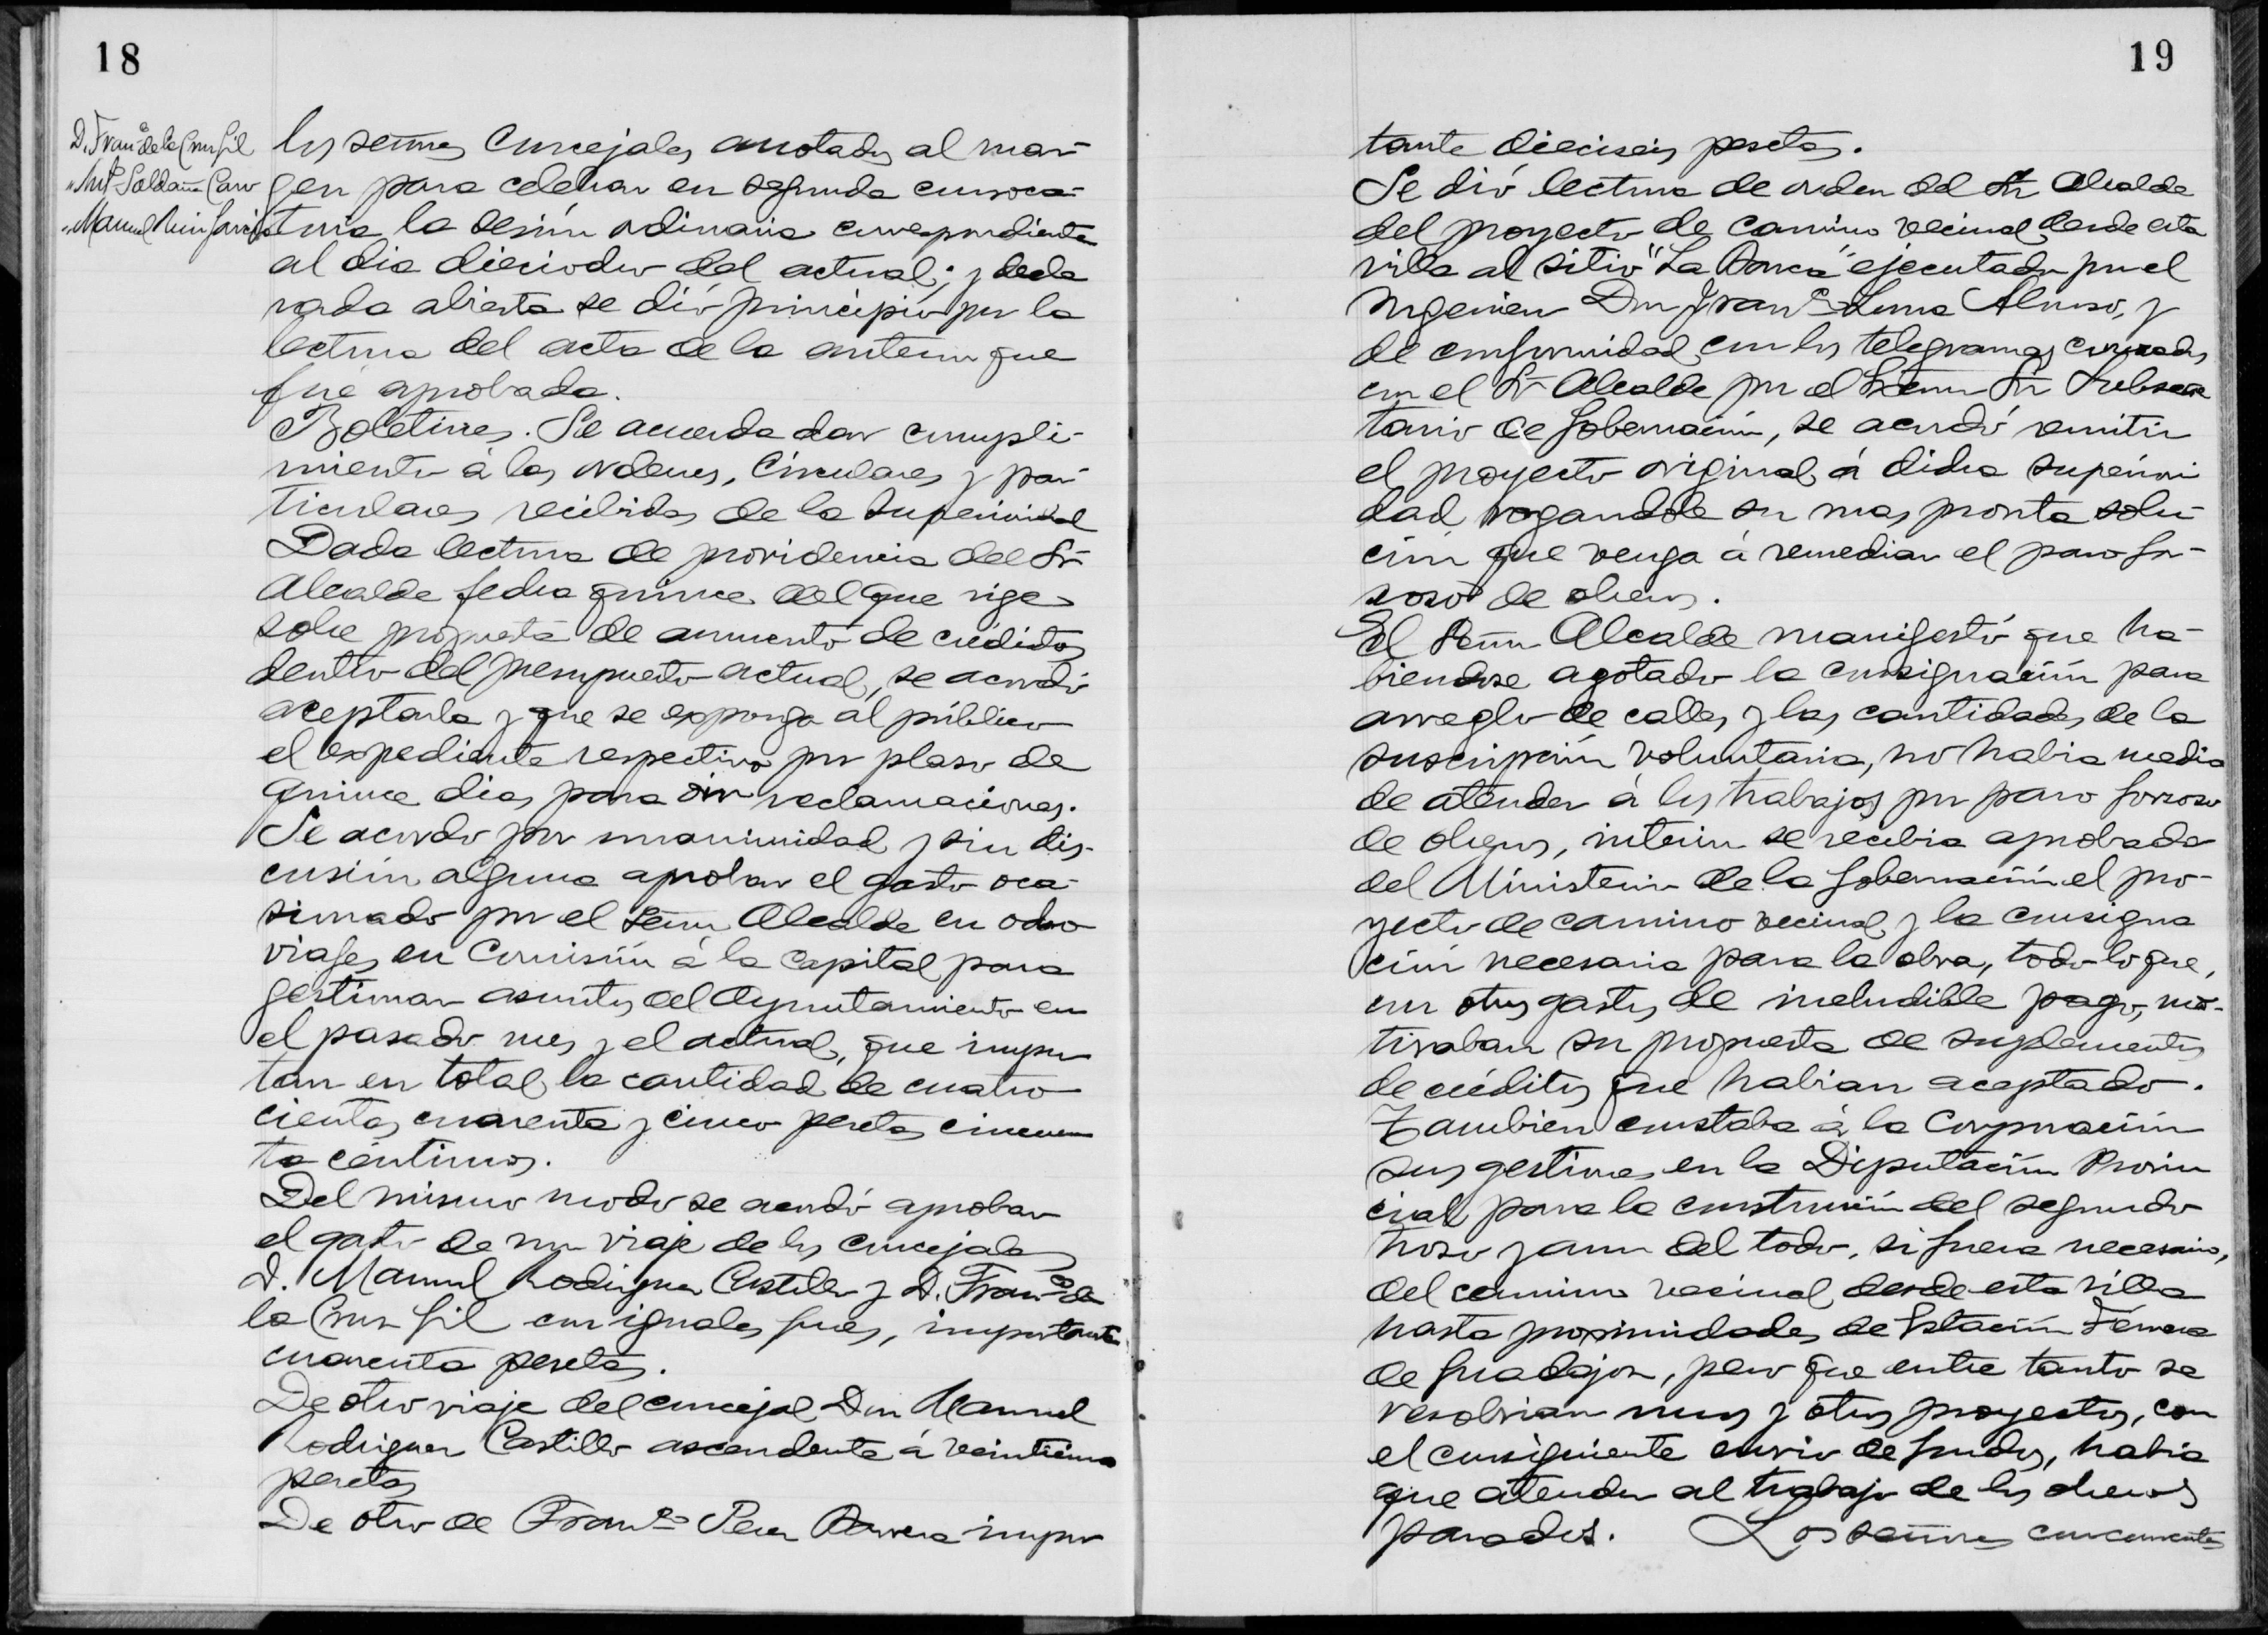 18
D. Franco de la Cruz Gil
" Anto Saldaña Caro
" Manuel Ruiz Garcia
los señores Concejales anotados al mar-
gen para celebrar en segunda convoca-
toria la sesión ordinaria correspondiente
al dia dieciocho del actual; y decla
rada abierta se dió principio por la
lectura del acta de la anterior que
fué aprobada.
Boletines. Se acuerda dar cumpli-
miento á las ordenes, Circulares y par-
ticulares recibidas de la Superioridad
Dada lectura de providencia del Sr
Alcalde fecha quince del que rige
sobre propuesta de aumento de créditos
dentro del presupuesto actual, se acordó
aceptarla y que se exponga al público
el expediente respectivo por plazo de
quince dias para oir reclamaciones.
Se acordo por unanimidad y sin dis-
cusión alguna aprobar el gasto oca-
sionado por el Señor Alcalde en ocho
viajes en Comisión á la Capital para
gestionar asuntos del Ayuntamiento en
el pasado mes y el actual, que impor
tan en total la cantidad de cuatro
cientas cuarenta y cinco pesetas cincuen
ta céntimos.
Del mismo modo se acordó aprobar
el gasto de un viaje de los concejales
D. Manuel Rodriguez Castillo y D. Franco de
la Cruz Gil con iguales fines, importante
cuarenta pesetas.
De otro viaje del concejal Don Manuel
Rodriguez Castillo ascendente á veinticinco
pesetas
De otro de Franco Perez Barrera impor
19
tante dieciseis pesetas.
Se dió lectura de orden del Sr Alcalde
del proyecto de camino vecinal desde esta
villa al sitio "La Barca" ejecutado por el
Ingeniero Don Franco Luna Alonso, y
de conformidad con los telegramas cursados
con el Sr Alcalde por el Señor Sr Subsecre
tario de Gobernación, se acordó remitir
el proyecto original á dicha superiori
dad rogandole su mas pronta solu-
ción que venga á remediar el paro for-
zoso de obreros.
El Señor Alcalde manifestó que ha-
biendose agotado la consignación para
arreglo de calles y las cantidades de la
suscripción voluntaria, no habia medio
de atender á los trabajos por paro forzoso
de obreros, interin se recibia aprobado
del Ministerio de la Gobernación el pro-
yecto de camino vecinal y la consigna
ción necesaria para la obra, todo lo que,
con otros gastos de ineludible pago, mo-
tivaban su propuesta de suplementos
de créditos que habian aceptado.
Tambien constaba á la Corporación
sus gestiones en la Diputación Provin
cial para la construcción del segundo
trozo y aun del todo, si fuera necesario,
del camino vecinal desde esta villa
hasta proximidades de Estación Férrea
de Guadajoz, pero que entre tanto se
resolvian unos y otros proyectos, con
el consiguiente envio de fondos, habia
que atender al trabajo de los obreros
parados. Los señores concurrentes